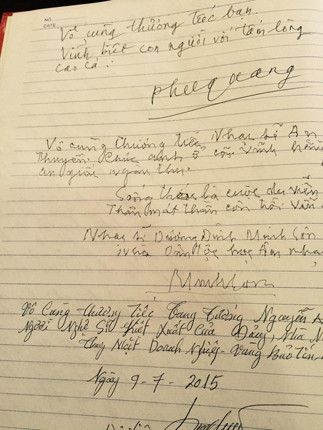 NO.
DATE
Vô cùng thương tiếc bạn.
Vĩnh biết con người với tấm lòng
cao cả!
Phú Quang
Vô cùng thương tiếc Nhạc sĩ An
Thuyên. Chúc anh ở cõi vĩnh hằng
an giấc ngàn thu.
Sống cuộc du
Thân mát thần còn hồi vẫn
Nhạc sĩ Dương Đình Minh Sơn
nhà Dân tộc học Âm nhạc
Vô Cùng thương Tiếc Trung Tướng Nguyễn A
Người Nghệ Sĩ Kiệt Xuất Của Đảng, Nhà N
Thay Mặt Doanh Nghiệp Vàng Bảo Tín
Ngày 9-7-2015